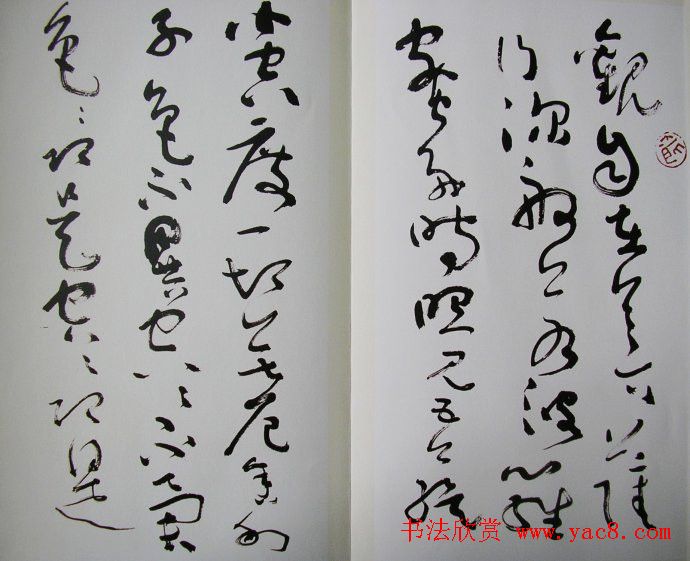 觀自在菩薩
行深般若波羅
蜜多時照見五蘊
皆空度一切苦厄舍利
子色不異空〻不異
色〻即是空〻即是
书法欣赏 www.yac8.com